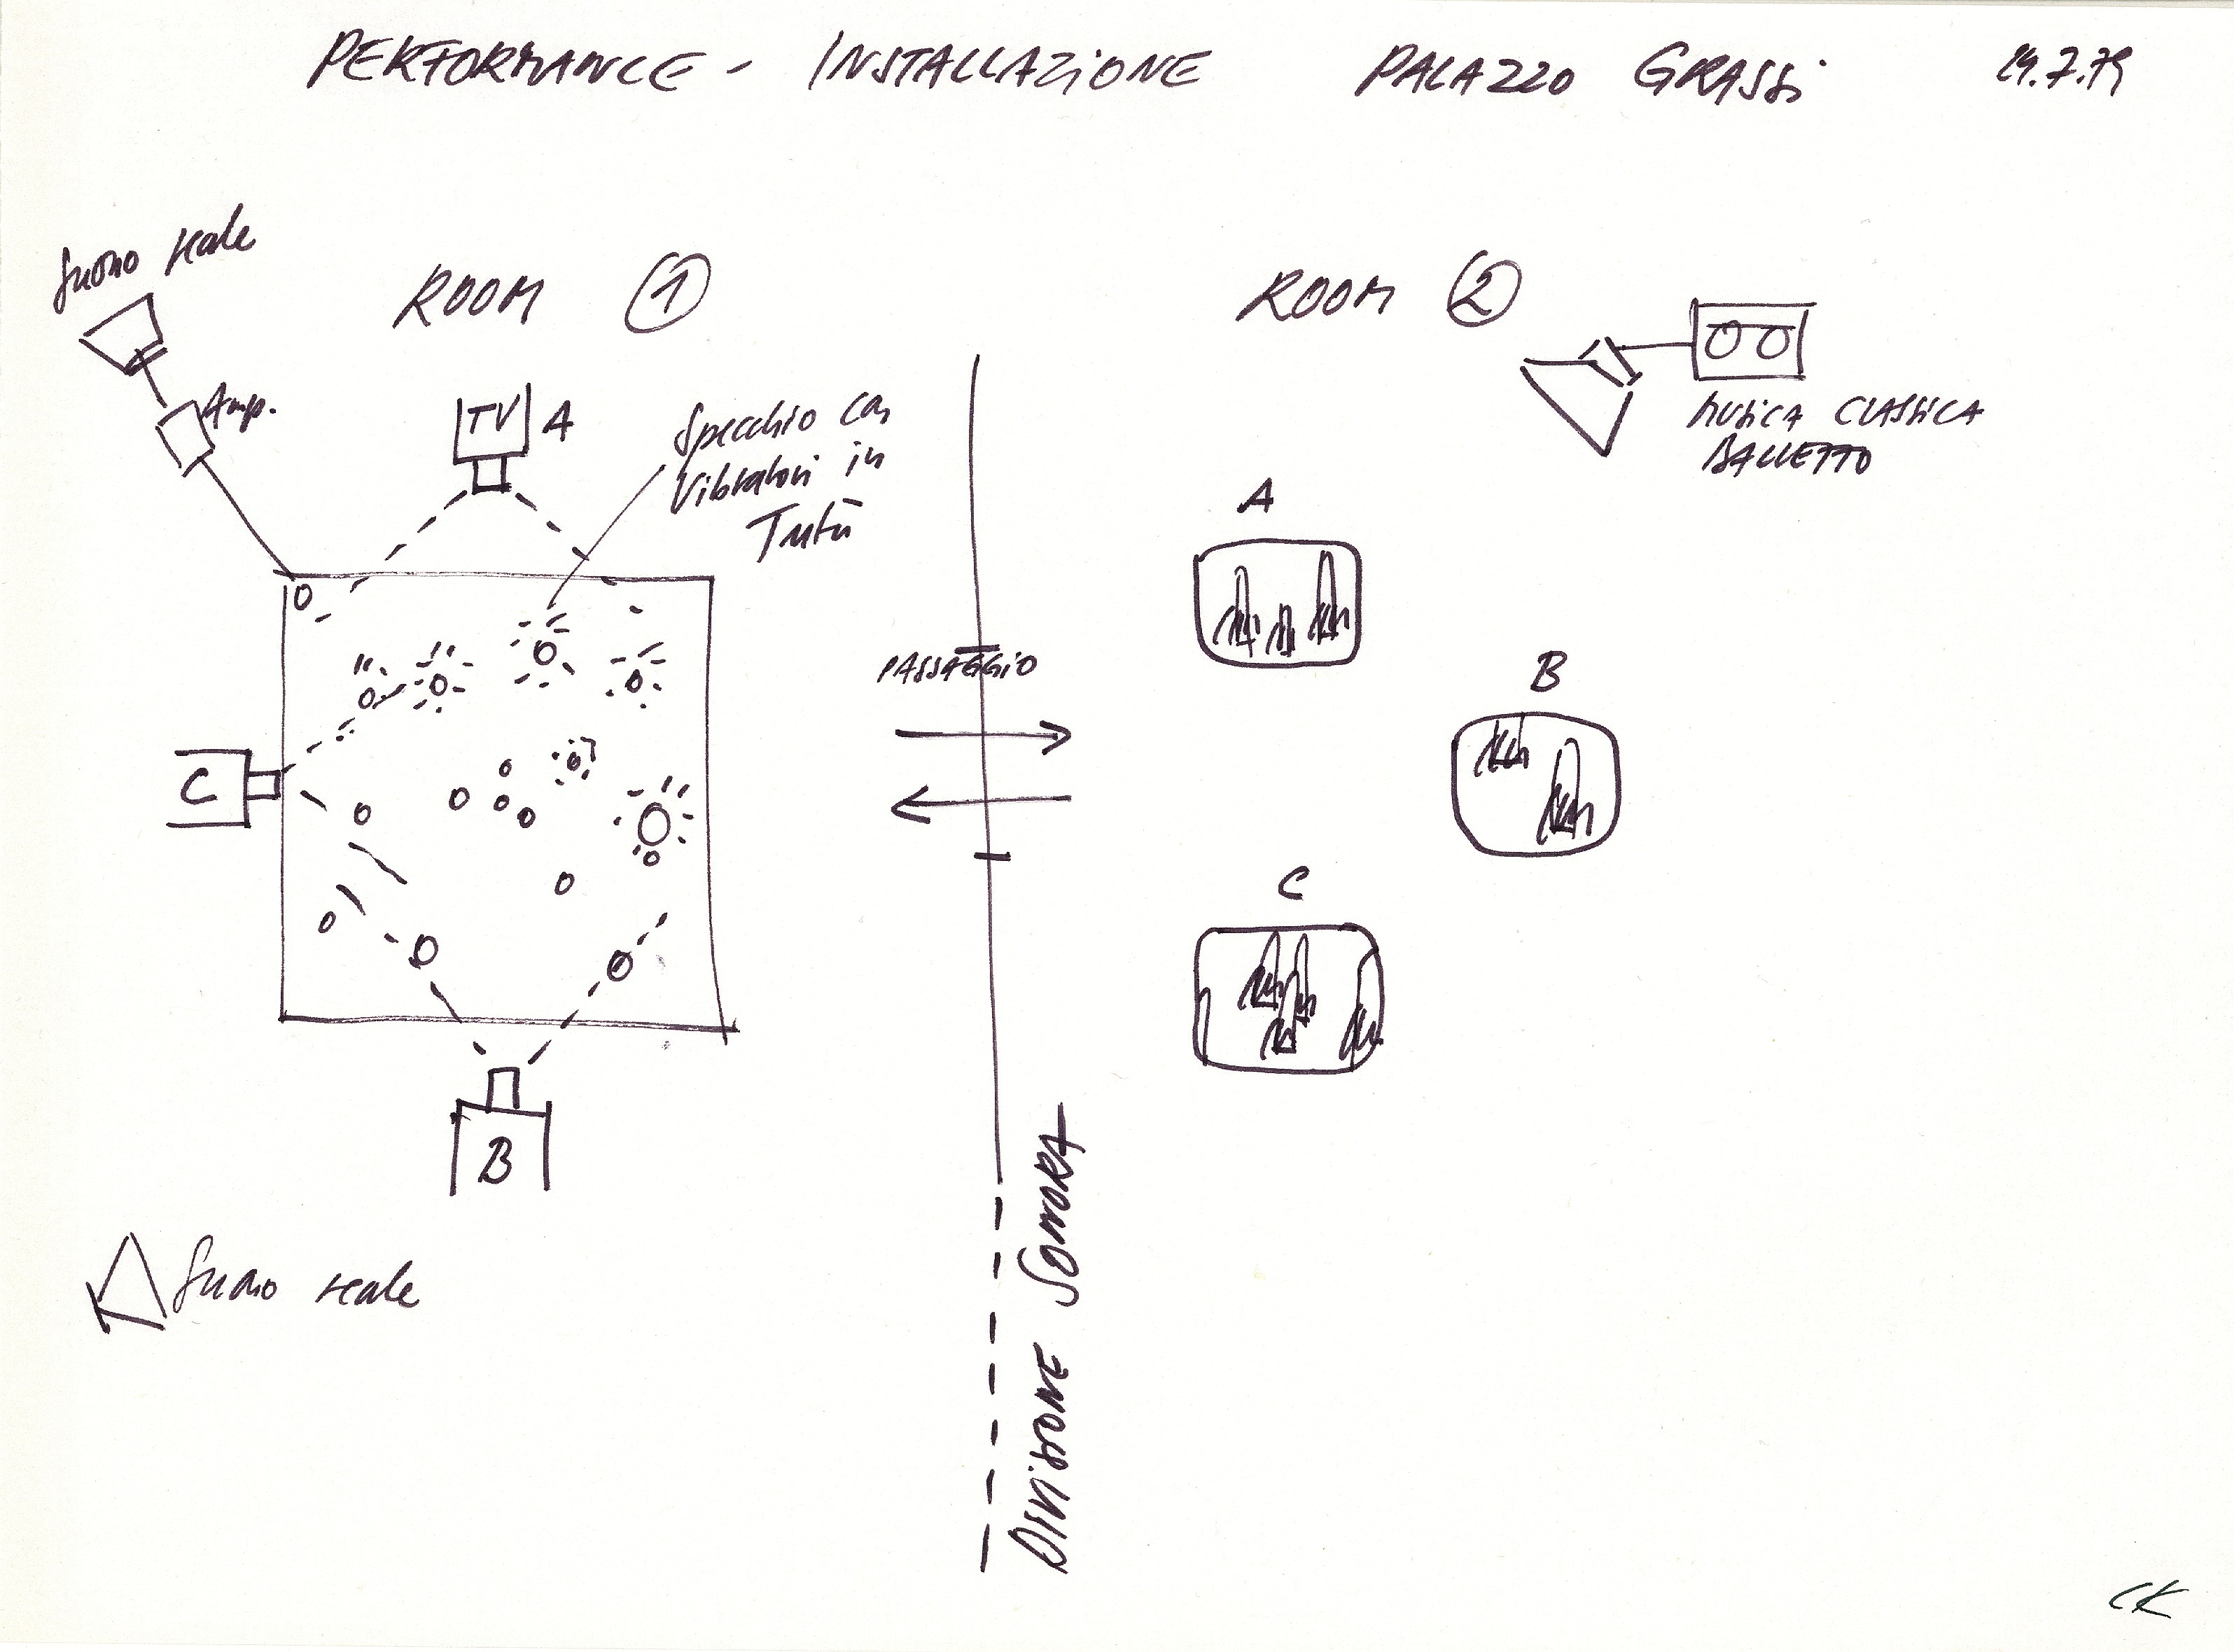 PERFORMANCE - INSTALLAZIONE PALAZZO GRASSI 24.7.79
Suono reale
ROOM 1
ROOM 2
Amp.
TV A
Specchio con
Vibratori in
Tutù
MUSICA CLASSICA
BALLETTO
A
PASSAGGIO
B
C
C
B
DIVISIONE SONORA
Suono reale
CK